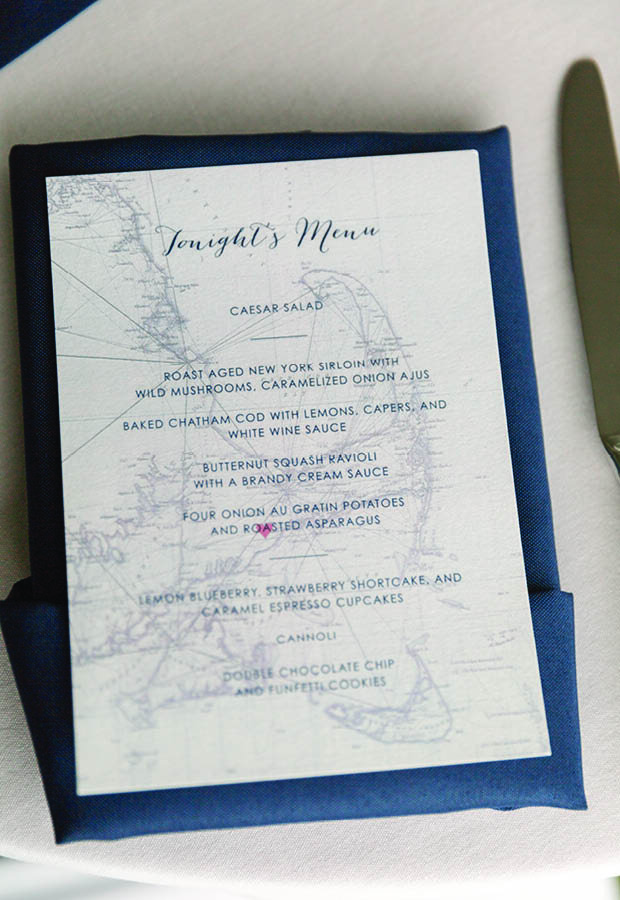 Tonight's Menu
CAESAR SALAD
ROAST AGED NEW YORK SIRLOIN WITH
WILD MUSHROOMS, CARAMELIZED ONION AJUS
BAKED CHATHAM COD WITH LEMONS, CAPERS, AND
WHITE WINE SAUCE
BUTTERNUT SQUASH RAVIOLI
WITH A BRANDY CREAM SAUCE
FOUR ONION AU GRATIN POTATOES
AND ROASTED ASPARAGUS
LEMON BLUEBERRY, STRAWBERRY SHORTCAKE, AND
CARAMEL ESPRESSO CUPCAKES
CANNOLI
DOUBLE CHOCOLATE CHIP
AND FUNFETTI COOKIES